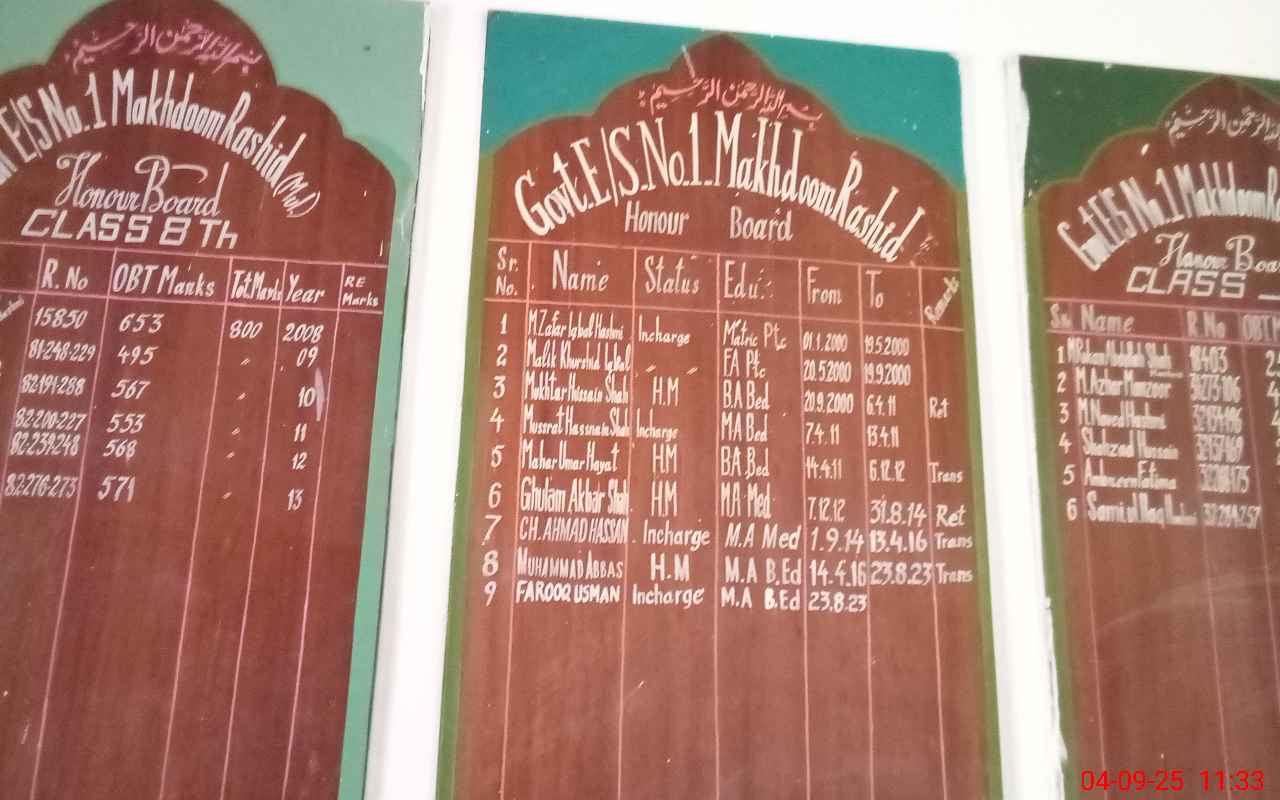 بسم الله الرحمن الرحيم
E/S No. 1 Makhdoom Rashid (Mul.)
Honour Board
CLASS 8 Th
R. No OBT Marks Tot. Marks Year RE Marks
15850 653 800 2008
81-248-229 495 " 09
82-191-288 567 10
82-200-227 553 " 11
82-239-248 568 12
82-276-273 571 " 13
بسم الله الرحمن الرحيم
Govt. E/S. No. 1. Makhdoom Rashid
Honour Board
Sr. No. Name Status Edu:. From To Remarks
1 M. Zafar Iqbal Hashmi Incharge Matric Ptc 01.1.2000 19.5.2000
2 Malik Khurshid Iqbal " " FA Ptc 20.5.2000 19.9.2000
3 Mukhtar Hussain Shah H.M B.A Bed 20.9.2000 6.4.11 Ret
4 Mussrat Hassnain Shah Incharge MA Bed 7.4.11 13.4.11
5 Mahar Umar Hayat H.M BA.Bed 14.4.11 6.12.12 Trans
6 Ghulam Akbar Shah H.M MA Med 7.12.12 31.8.14 Ret
7 CH. AHMAD HASSAN Incharge M.A Med 1.9.14 13.4.16 Trans
8 MUHAMMAD ABBAS H.M M.A B.Ed 14.4.16 23.8.23 Trans
9 FAROOQ USMAN Incharge M.A B.Ed 23.8.23
بسم الله الرحمن الرحيم
Govt. E/S No. 1 Makhdoom
Honour
CLASS
Sr. Name R. No
1 Abdullah Shah 18403
2 M. Azhar Manzoor
3 M. Naved Hashmi
4 Shahzad Hussain
5 Ambreen Fatima
6 Sami ul Haq
04-09-25 11:33